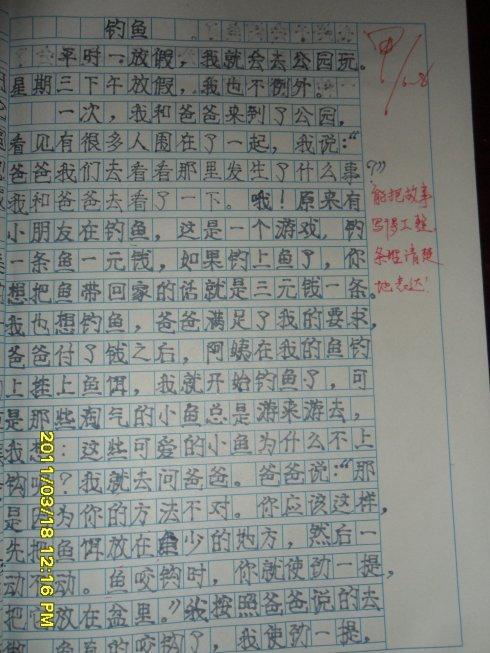 钓鱼
平时一放假，我就会去公园玩。
星期三下午放假，我也不例外。
一次，我和爸爸来到了公园，
看见有很多人围在了一起，我说：“
爸爸我们去看看那里发生了什么事？”
我和爸爸去看了一下。哦！原来有
小朋友在钓鱼，这是一个游戏，钓
一条鱼一元饯，如果钓上鱼了，你
想把鱼带回家的话就是三元饯一条。
我也想钓鱼，爸爸满足了我的要求，
爸爸付了饯之后，阿姨在我的鱼钓
上挂上鱼饵，我就开始钓鱼了，可
是那些淘气的小鱼总是游来游去，
我想：这些可爱的小鱼为什么不上
钩呢？我就去问爸爸。爸爸说：“那
是因为你的方法不对。你应该这样，
先把鱼饵放在鱼少的地方，然后一
动不动。鱼咬钩时，你就使劲一提，
把它放在盆里。”我按照爸爸说的去
真的咬钩了，我使劲一提，
甲
能把故事
写得工整
条理清楚
地表达！
2011/03/18 12:16 PM